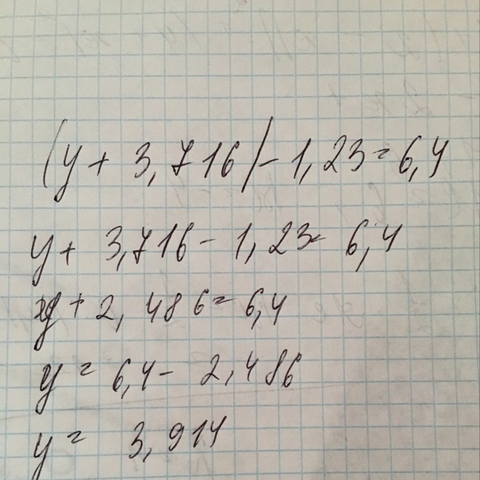 (y + 3,716) - 1,23 = 6,4
y + 3,716 - 1,23 = 6,4
y + 2,486 = 6,4
y = 6,4 - 2,486
y = 3,914